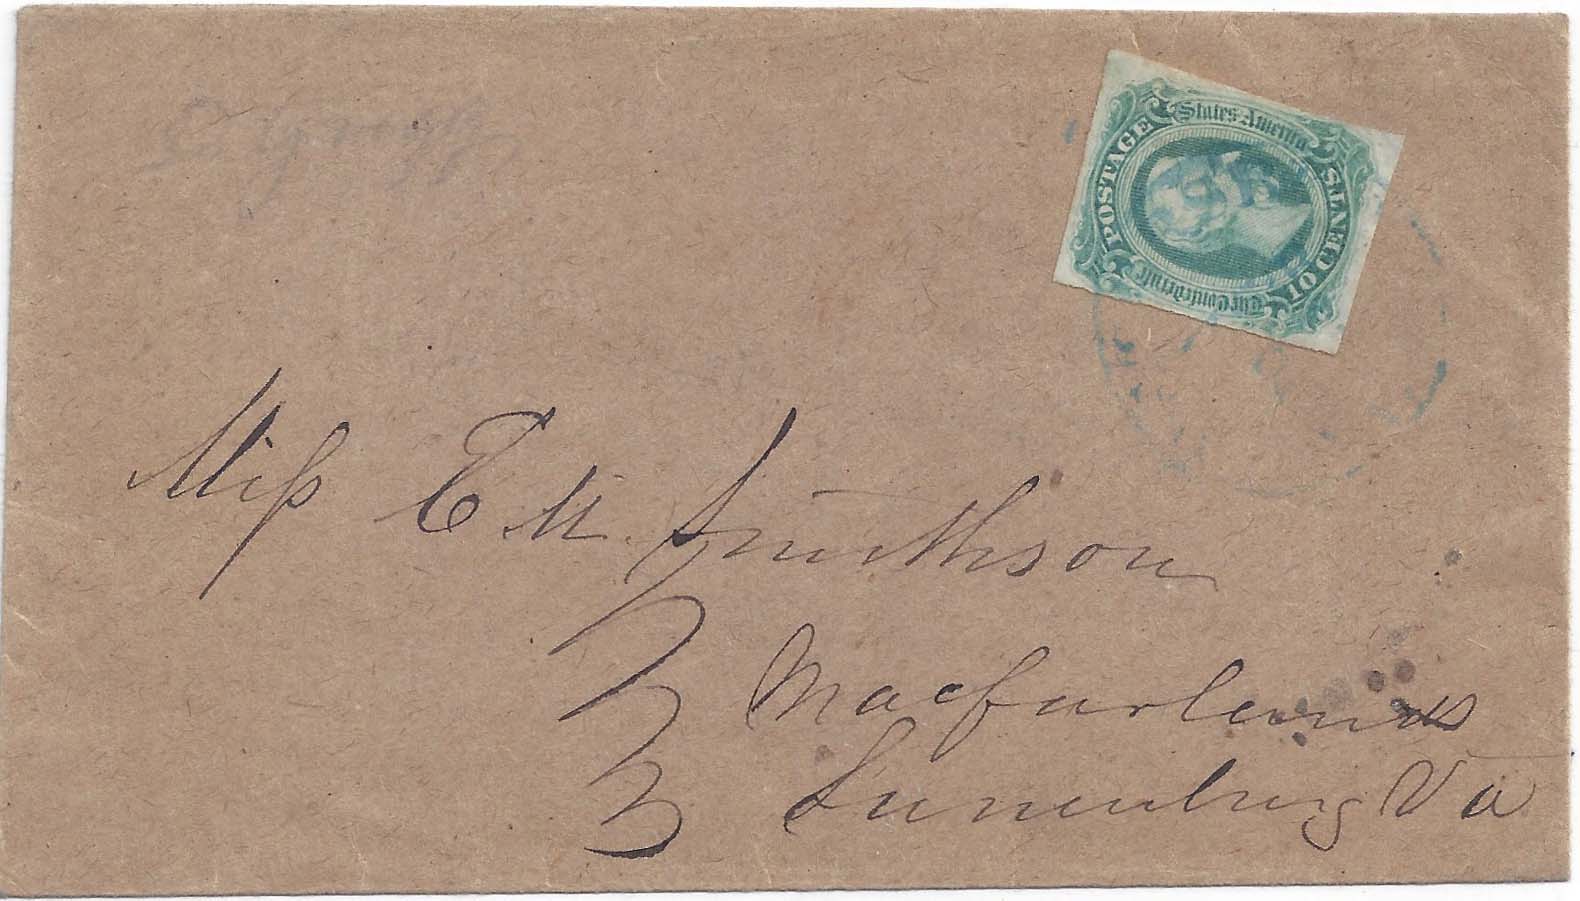 The Confederate States America
POSTAGE
10 CENTS
Miss E M Smithson
Macfarlands
Lunenburg Va